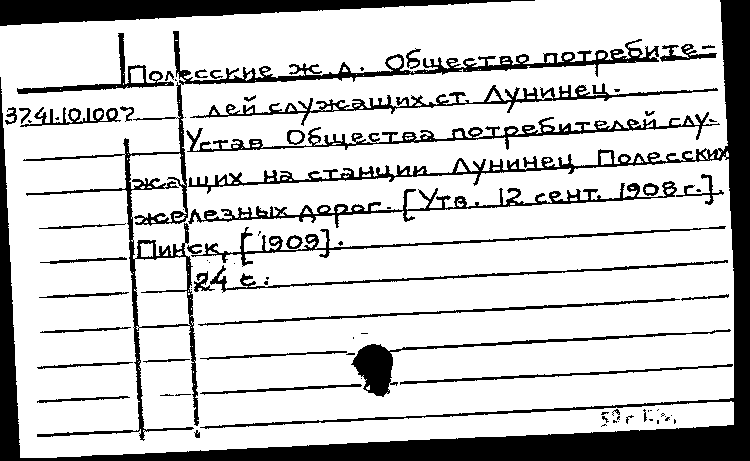 Полесские ж.д. Общество потребите-
37.41.10.1007 лей служащих, ст. Лунинец.
Устав Общества потребителей слу-
жащих на станции Лунинец Полесских
железных дорог. [Утв. 12 сент. 1908 г.].
Пинск, [1909].
24 с.